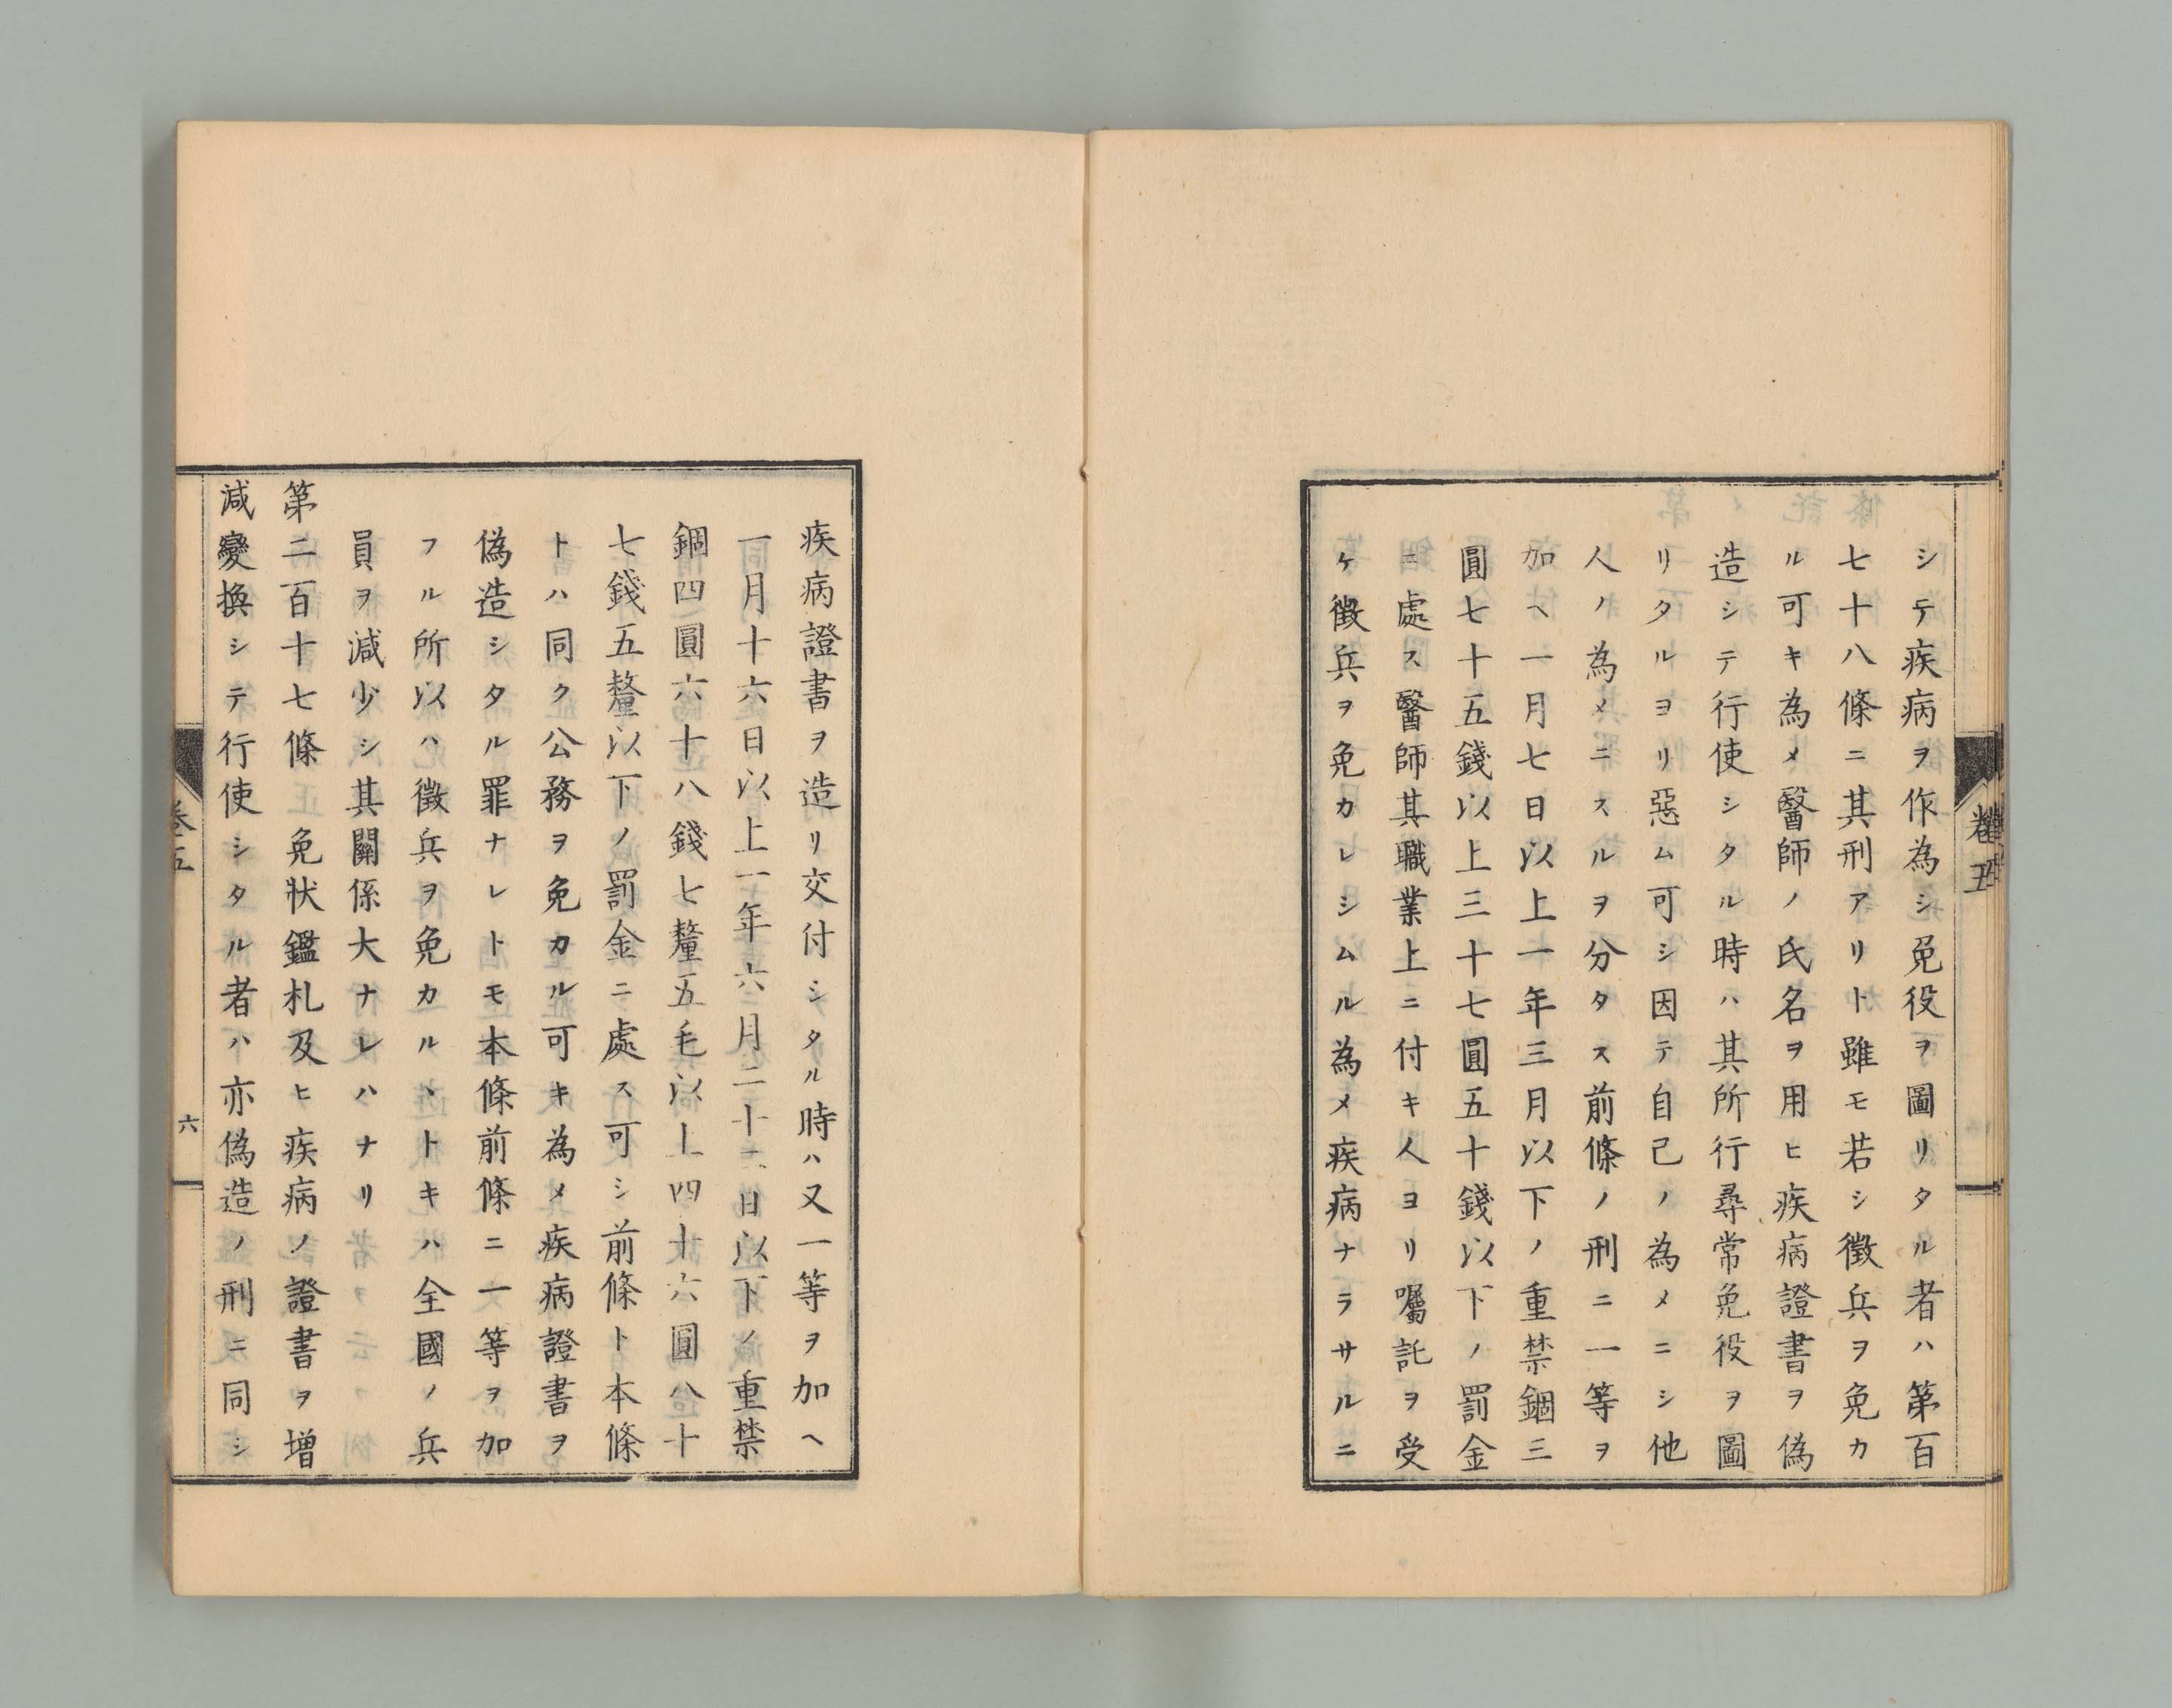 シテ疾病ヲ作為シ免役ヲ圖リタル者ハ第百
七十八條ニ其刑アリト雖モ若シ徴兵ヲ免カ
ル可キ為メ醫師ノ氏名ヲ用ヒ疾病證書ヲ偽
造シテ行使シタル時ハ其所行尋常免役ヲ圖
リタルヨリ惡ム可シ因テ自己ノ為メニシ他
人ノ為メニスルヲ分タス前條ノ刑ニ一等ヲ
加ヘ一月七日以上一年三月以下ノ重禁錮三
圓七十五錢以上三十七圓五十錢以下ノ罰金
ニ處ス醫師其職業上ニ付キ人ヨリ囑託ヲ受
ケ徴兵ヲ免カレシムル為メ疾病ナラサルニ
卷五
疾病證書ヲ造リ交付シタル時ハ又一等ヲ加ヘ
一月十六日以上一年六月二十二日以下ノ重禁
錮四圓六十八錢七釐五毛以上四十六圓八十
七錢五釐以下ノ罰金ニ處ス可シ前條ト本條
トハ同ク公務ヲ免カル可キ為メ疾病證書ヲ
偽造シタル罪ナレトモ本條前條ニ一等ヲ加
フル所以ハ徴兵ヲ免カルヽトキハ全國ノ兵
員ヲ減少シ其關係大ナレハナリ
第二百十七條 免狀鑑札及ヒ疾病ノ證書ヲ增
減變換シテ行使シタル者ハ亦偽造ノ刑ニ同シ
卷五
六